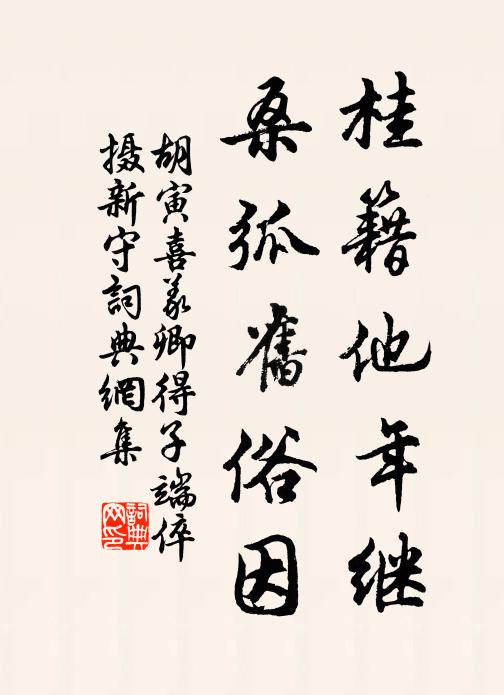 桂籍他年继
桑弧舊俗因
胡寅喜義卿得子端倅
摄新守詞典網集
詞典网印